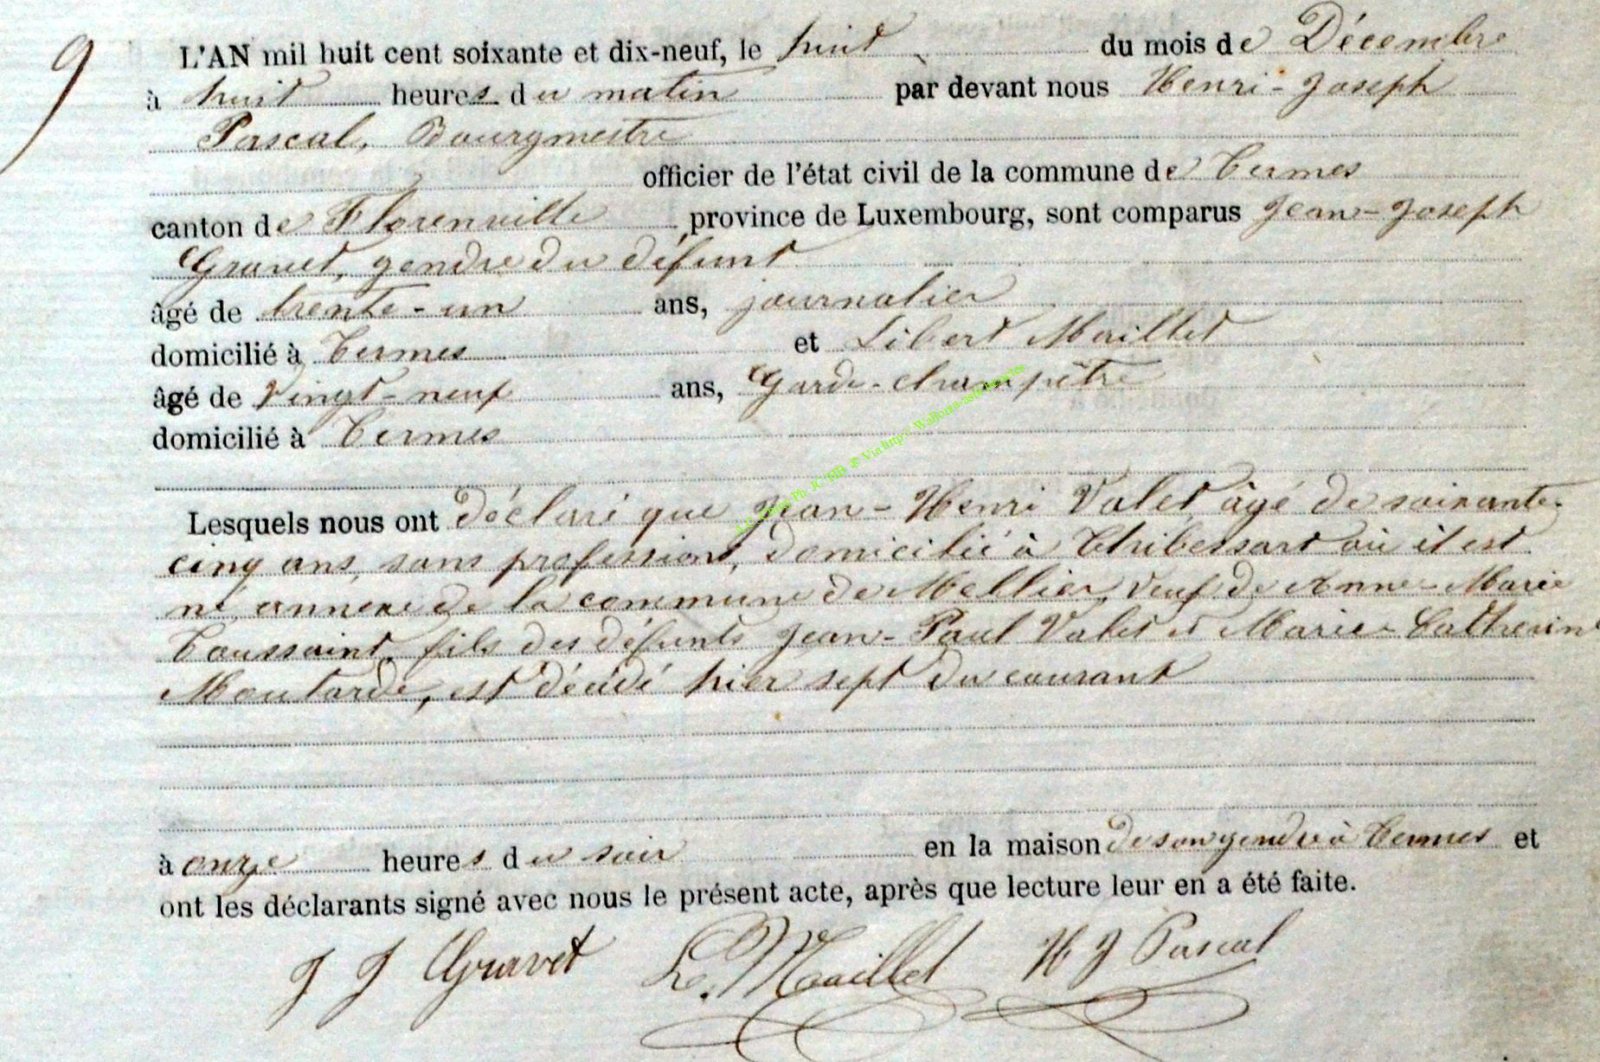 9
L'AN mil huit cent soixante et dix-neuf, le huit du mois de Décembre
à huit heures du matin par devant nous Henri-Joseph
Pascal, Bourgmestre
officier de l'état civil de la commune de Termes
canton de Florenville province de Luxembourg, sont comparus Jean-Joseph
Gravet, gendre du défunt
âgé de trente-un ans, journalier
domicilié à Termes et Libert Maillet
âgé de vingt-neuf ans, Garde-champêtre
domicilié à Termes
Lesquels nous ont déclaré que Jean-Henri Valet, âgé de soixante-
cinq ans, sans profession, domicilié à Thibessart où il est
né annexe de la commune de Mellier, veuf de Anne-Marie
Toussaint, fils des défunts Jean-Paul Valet et Marie-Catherine
Moutarde, est décédé hier sept du courant
à onze heures du soir en la maison de son gendre à Termes et
ont les déclarants signé avec nous le présent acte, après que lecture leur en a été faite.
J J Gravet L. Maillet H J Pascal